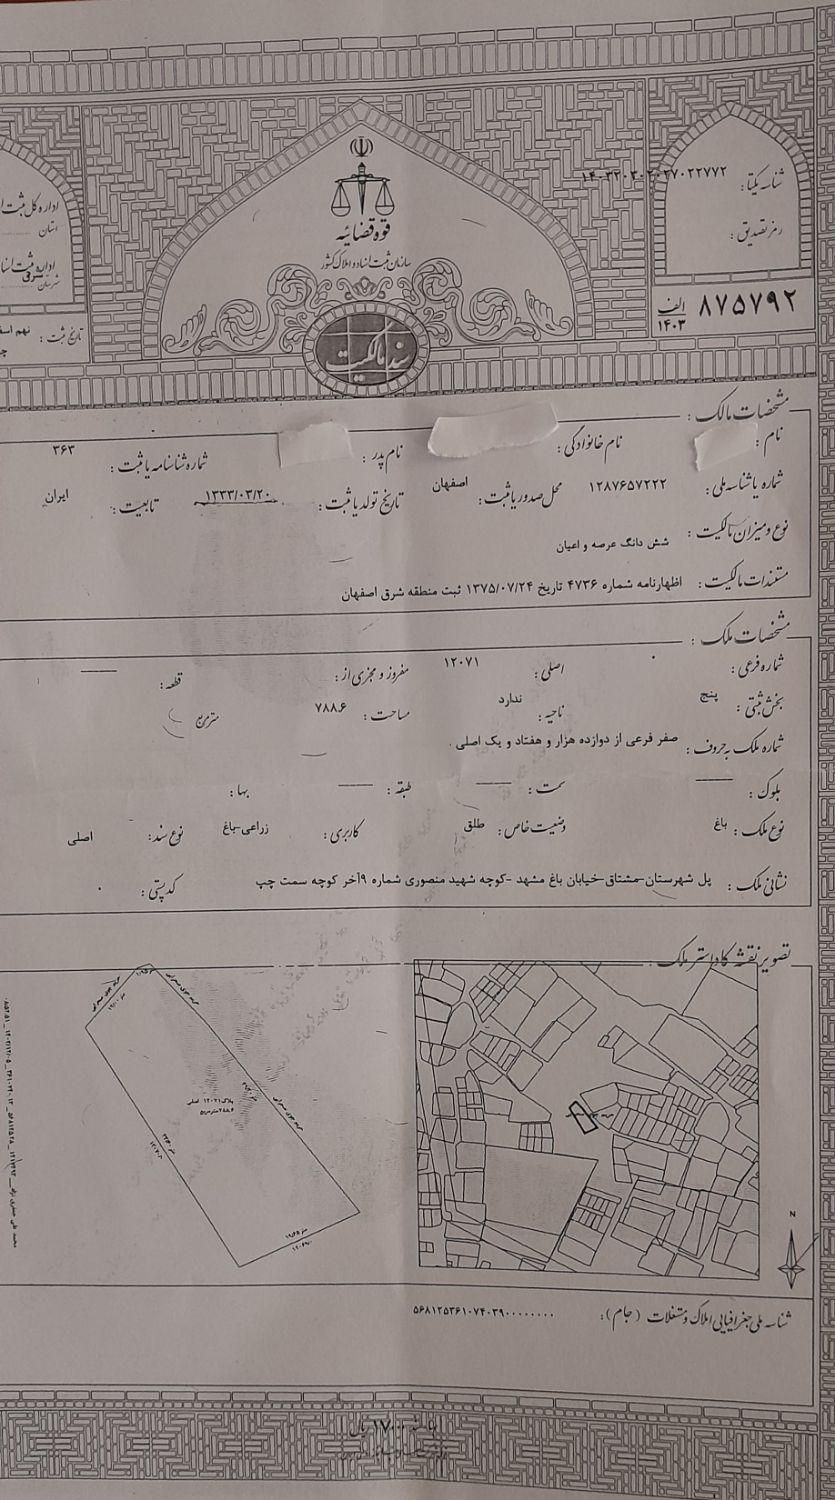 شناسه یکتا: ۱۴۰۳۲۰۳۰۲۰۲۷۰۲۲۷۷۲
رمز تصدیق:
۸۷۵۷۹۲ الف ۱۴۰۳
قوه قضائیه
سازمان ثبت اسناد و املاک کشور
سند مالکیت
اداره کل ثبت
استان
اداره ثبت
شرق
شهرستان
تاریخ ثبت: نهم
مشخصات مالک:
نام: نام خانوادگی: نام پدر: شماره شناسنامه یا ثبت: ۳۶۳
شماره یا شناسه ملی: ۱۲۸۷۶۵۷۲۲۲ محل صدور یا ثبت: اصفهان تاریخ تولد یا ثبت: ۱۳۳۳/۰۳/۲۰ تابعیت: ایران
نوع و میزان مالکیت: شش دانگ عرصه و اعیان
مستندات مالکیت: اظهارنامه شماره ۴۷۳۶ تاریخ ۱۳۷۵/۰۷/۲۴ ثبت منطقه شرق اصفهان
مشخصات ملک:
شماره فرعی: ۰ اصلی: ۱۲۰۷۱ مفروز و مجزی از: قطعه:
بخش ثبتی: پنج ناحیه: ندارد مساحت: ۷۸۸.۶ متر مربع
شماره ملک به حروف: صفر فرعی از دوازده هزار و هفتاد و یک اصلی .
بلوک: سمت: طبقه: بها:
نوع ملک: باغ وضعیت خاص: طلق کاربری: زراعی-باغ نوع سند: اصلی
نشانی ملک: پل شهرستان-مشتاق-خیابان باغ مشهد -کوچه شهید منصوری شماره ۹آخر کوچه سمت چپ کد پستی: ۰
تصویر نقشه کاداستر ملک:
N
شناسه ملی جغرافیایی املاک و مستغلات (جام): ۵۶۸۱۲۵۳۶۱۰۷۴۰۳۹۰۰۰۰۰۰۰۰